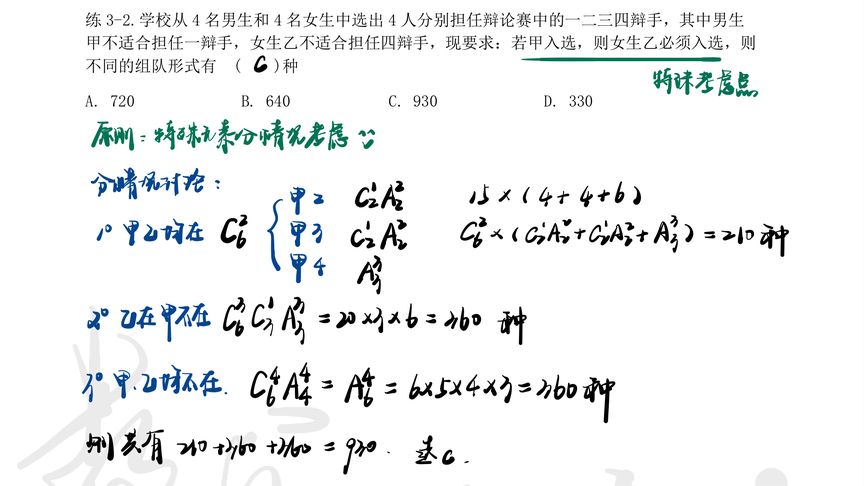 练 3-2.学校从 4 名男生和 4 名女生中选出 4 人分别担任辩论赛中的一二三四辩手，其中男生
甲不适合担任一辩手，女生乙不适合担任四辩手，现要求：若甲入选，则女生乙必须入选，则
不同的组队形式有 （ C ）种
特殊考虑点
A. 720 B. 640 C. 930 D. 330
原则：特殊元素分情况考虑
分情况讨论：
甲2 C₂¹A₂² 15×(4+4+6)
1° 甲乙均在 C₆² { 甲3 C₂¹A₂² C₆²×(C₂¹A₂²+C₂¹A₂²+A₃³)=210种
甲4 A₃³
2° 乙在甲不在 C₆³C₃¹A₃³=20×3×6=360 种
3° 甲.乙均不在. C₆⁴A₄⁴=A₆⁴=6×5×4×3=360种
则共有 210+360+360=930. 选C.